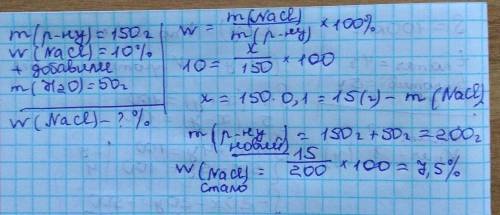 m(р-ну) = 150г
w(NaCl) = 10%
+ добавили
m(H2O) = 50г
w(NaCl) - ? %
w = m(NaCl) / m(р-ну) × 100%
10 = x / 150 × 100
x = 150 · 0,1 = 15(г) - m(NaCl)
m(р-ну новий) = 150г + 50г = 200г
w(NaCl) стало = 15 / 200 × 100 = 7,5%